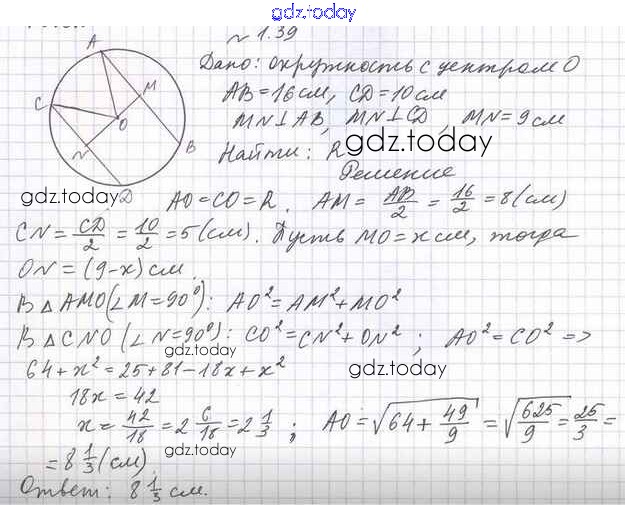 gdz.today
№ 1.39
Дано: окружность с центром O
AB = 16 см, CD = 10 см
MN ⊥ AB, MN ⊥ CD, MN = 9 см
gdz.today
Найти: R
Решение
A
C
M
O
N
B
D
gdz.today
AO = CO = R. AM = AB/2 = 16/2 = 8 (см)
CN = CD/2 = 10/2 = 5 (см). Пусть MO = x см, тогда
ON = (9-x) см.
В △ AMO (∠M = 90°): AO² = AM² + MO²
В △ CNO (∠N = 90°): CO² = CN² + ON² ; AO² = CO² =>
gdz.today
64 + x² = 25 + 81 - 18x + x²
gdz.today
18x = 42
x = 42/18 = 2 6/18 = 2 1/3 ; AO = √(64 + 49/9) = √(625/9) = 25/3 =
gdz.today
= 8 1/3 (см)
Ответ: 8 1/3 см.